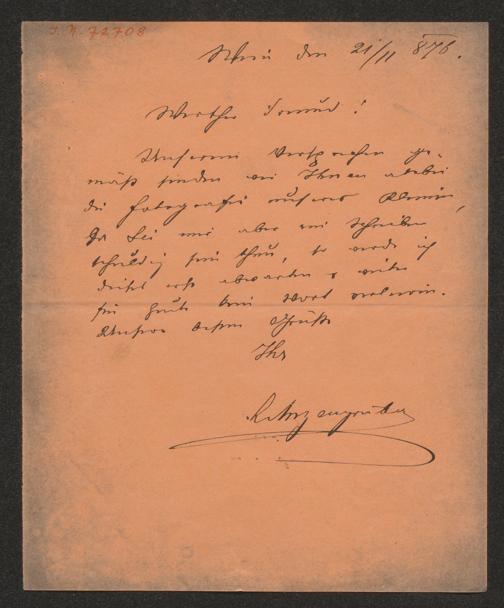 I. N. 72708
Wien den 21/11 876.
Werther Freund!
Unserem Versprechen ge-
mäß senden wir Ihnen anbei
die Fotografie unseres Kleinen,
Da Sie mir aber ein Schreiben
schuldig sein thun, so werde ich
dieses erst abwarten & weiter
für heute kein Wort verlieren.
Unsere besten Grüße
Ihr
L. Anzengruber